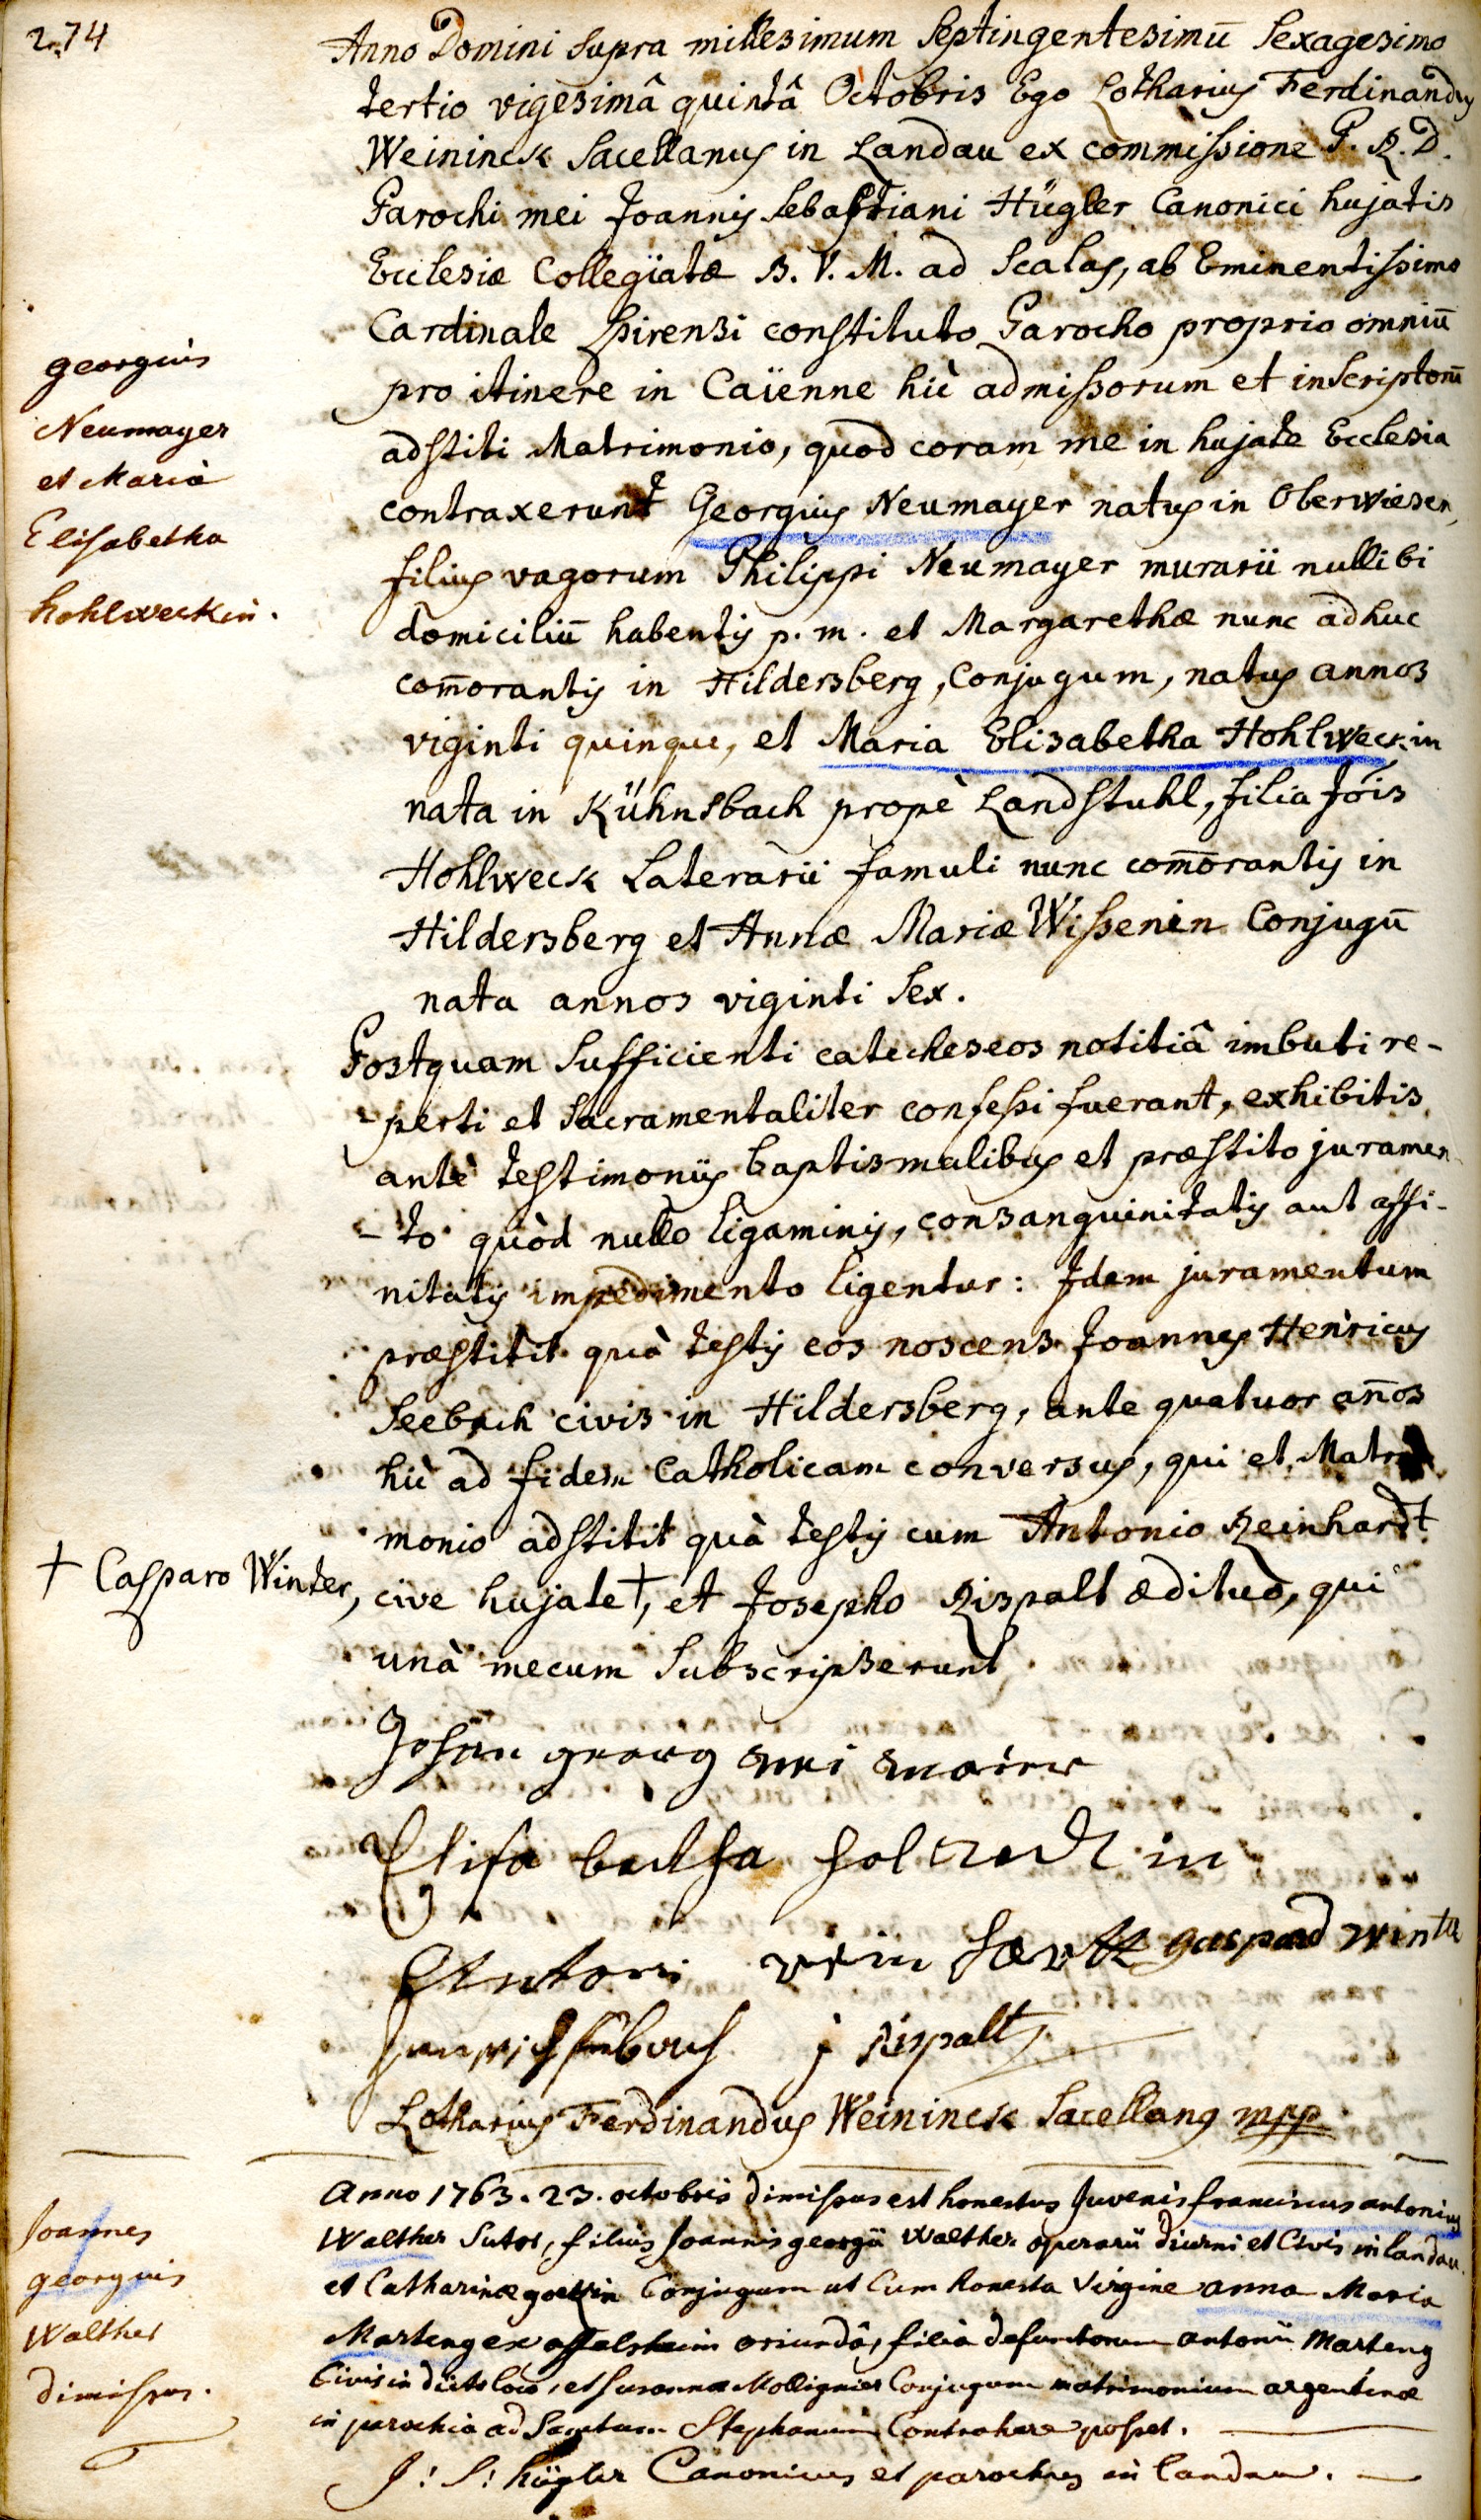 274
Anno Domini supra millesimum septingentesimū sexagesimo
tertio vigesimâ quintâ Octobris Ego Lotharius Ferdinandus
Weininck Sacellanus in Landau ex commissione P. R. D.
Parochi mei Joannis Sebastiani Hügler Canonici hujatis
Ecclesiæ Collegiatæ B. V. M. ad Scalas, ab Eminentissimo
Cardinale Spirensi constituto Parocho proprio omniū
pro itinere in Caïenne hic admissorum et inscriptorū
adstiti Matrimonio, quod coram me in hujate Ecclesia
contraxerunt Georgius Neumayer natus in Oberwiesen,
filius vagorum Philippi Neumayer murarii nullibi
domiciliū habentis p. m. et Margarethæ nunc adhuc
com̄orantis in Hildersberg, Conjugum, natus annos
viginti quinque, et Maria Elisabetha Hohlweckin
nata in Kühnsbach propè Landstuhl, filia Jois
Hohlweck Laterarii famuli nunc com̄orantis in
Hildersberg et Annæ Mariæ Wissenin Conjugū
nata annos viginti sex.
georgius
Neumayer
et Maria
Elisabetha
hohlweckin.
Postquam sufficienti catecheseos notitiâ imbuti re-
perti et sacramentaliter confessi fuerant, exhibitis
antè testimoniis baptismalibus et præstito juramen-
-to quòd nullo ligaminis, consanguinitatis aut affi-
nitatis impedimento ligentur: Idem juramentum
præstitit quà testis eos noscens Joannes Henricus
Seebach civis in Hildersberg, ante quatuor an̄os
hic ad fidem Catholicam conversus, qui et Matri
monio adstitit quà testis cum Antonio Reinhardt
† Casparo Winter, cive hujate †, et Josepho Rispalt ædituo, qui
unà mecum subscripserunt.
Johan georg nei maier
Elisa betha holweck in
Antoni rein hartt gaspard winter
j Rispalt
Lotharius Ferdinandus Weininck Sacellanus mpp
Joannes
georgius
Walther
dimissus.
Anno 1763. 23. octobris dimissus est honestus Juvenis franciscus antonius
Walther Sutor, filius Joannis georgii Walther operarii diurni et Civis in landau
et Catharinæ Conjugum ut Cum honesta Virgine anna Maria
Marteng ex oriundâ, filiâ defunctorum antonii Marteng
Civis in dicto loco, et Susannæ Mollignier Conjugum matrimonium argentinæ
in parochia ad Sanctum Stephanum Contrahere posset.
J: S: hügler Canonicus et parochus in landau.